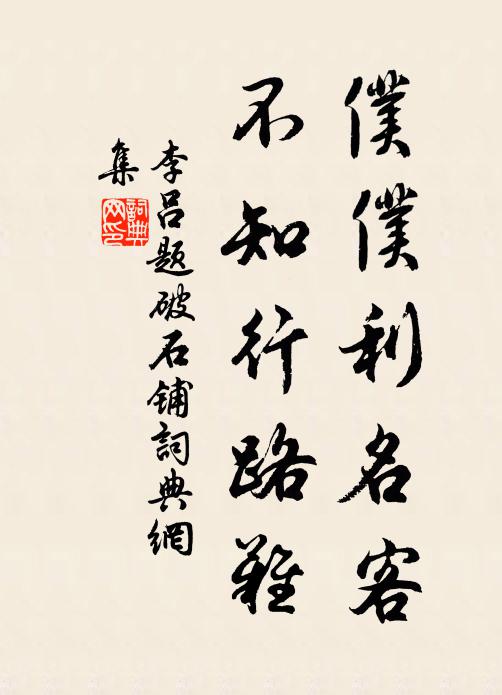 僕僕利名客
不知行路難
李呂題破石鋪詞典網
集
詞典
网印